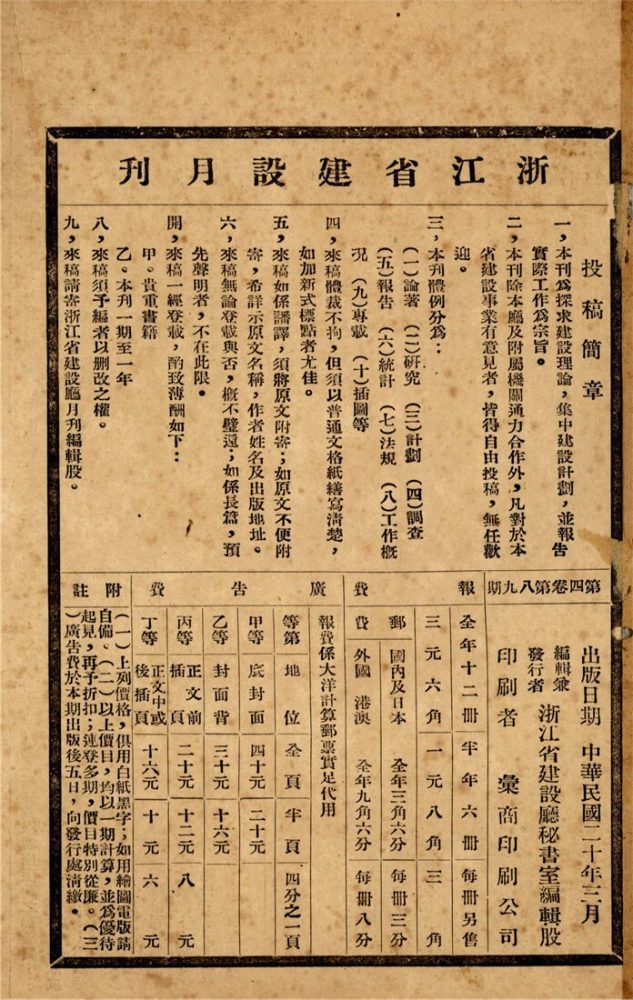 浙江省建設月刊
投稿簡章
一，本刊爲探求建設理論，集中建設計劃，並報告
實際工作爲宗旨。
二，本刊除本廳及附屬機關通力合作外，凡對於本
省建設事業有意見者，皆得自由投稿，無任歡
迎。
三，本刊體例分爲：
（一）論著　（二）研究　（三）計劃　（四）調查
（五）報告　（六）統計　（七）法規　（八）工作槪
況　（九）專載　（十）插圖等
四，來稿體裁不拘，但須以普通文格紙繕寫清楚，
如加新式標點者尤佳。
五，來稿如係譒譯，須將原文附寄；如原文不便附
寄，希詳示原文名稱，作者姓名及出版地址。
六，來稿無論登載與否，槪不璧還；如係長篇，預
先聲明者，不在此限。
開，來稿一經登載，酌致薄酬如下：
甲。貴重書籍
乙。本刊一期至一年
八，來稿須予編者以删改之權。
九，來稿請寄浙江省建設廳月刊編輯股。
第四卷第八九期
出版日期　中華民國二十年三月
編輯兼
發行者　浙江省建設廳秘書室編輯股
印刷者　彙商印刷公司
報費
全年十二册　半年六册　每册另售
三元六角　一元八角　三角
郵費
國內及日本　全年三角六分　每册三分
外國　港澳　全年九角六分　每册八分
報費係大洋計算郵票實足代用
廣告費
等第　地位　全頁　半頁　四分之一頁
甲等　底封面　四十元　二十元
乙等　封面背　三十元　十六元
丙等　正文前插頁　二十元　十二元　八元
丁等　正文中或後插頁　十六元　十元　六元
附註
（一）上列價格，俱用白紙黑字；如用繪圖電版請
自備。（二）以上價目，均以一期計算，並爲優待
起見，再予折扣；連登多期，價目特別從廉。（三
）廣告費於本期出版後五日，向發行處清繳。